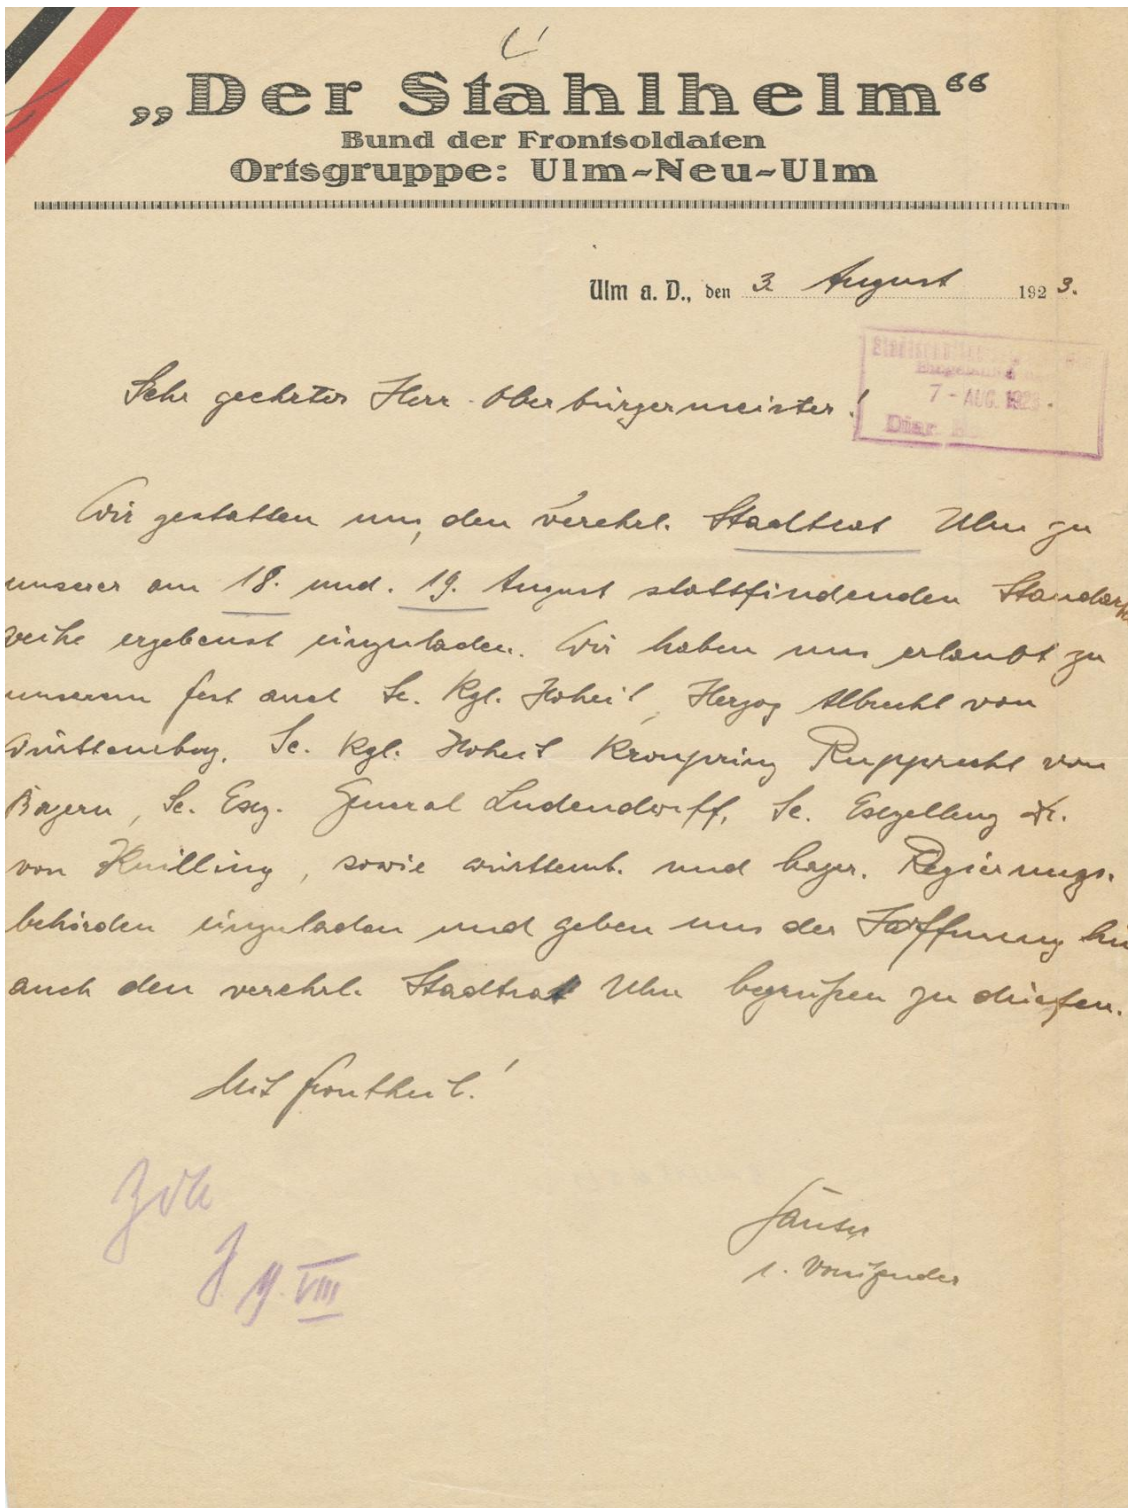 „Der Stahlhelm“
Bund der Frontsoldaten
Ortsgruppe: Ulm-Neu-Ulm
Ulm a. D., den 3. August 1923.
7 - AUG. 1923
Sehr geehrter Herr Oberbürgermeister!
Wir gestatten uns, den verehrl. Stadtrat Ulm zu
unserer am 18. und. 19. August stattfindenden Standarten
weihe ergebenst einzuladen. Wir haben uns erlaubt zu
unserem Fest auch Se. Kgl. Hoheit, Herzog Albrecht von
Württemberg, Se. Kgl. Hoheit Kronprinz Rupprecht von
Bayern, Se. Exz. General Ludendorff, Se. Exzellenz Dr.
von Knilling, sowie württemb. und bayer. Regierungs-
behörden einzuladen und geben uns der Hoffnung hin
auch den verehrl. Stadtrat Ulm begrüßen zu dürfen.
Mit Frontheil!
1. Vorsitzender
9. VIII